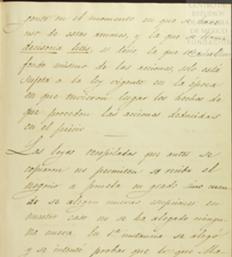 poner en el momento en que se 
uso de estas acciones, y la que se llama
decisoria litis, es decir la que
fondo mismo de las acciones, solo está
sujeta a la ley vigente en la época
en que tuvieron lugar los hechos de
que proceden las acciones deducidas
en el juicio
Las leyes recopiladas que antes se
copiaron no permiten se reciba el
negocio a prueba en grado sino cuando
se alegan nuevas excepciones en
nuestro caso no se ha alegado ningu
na nueva. en 1ª instancia se alegó
y se intentó probar que lo que Ma